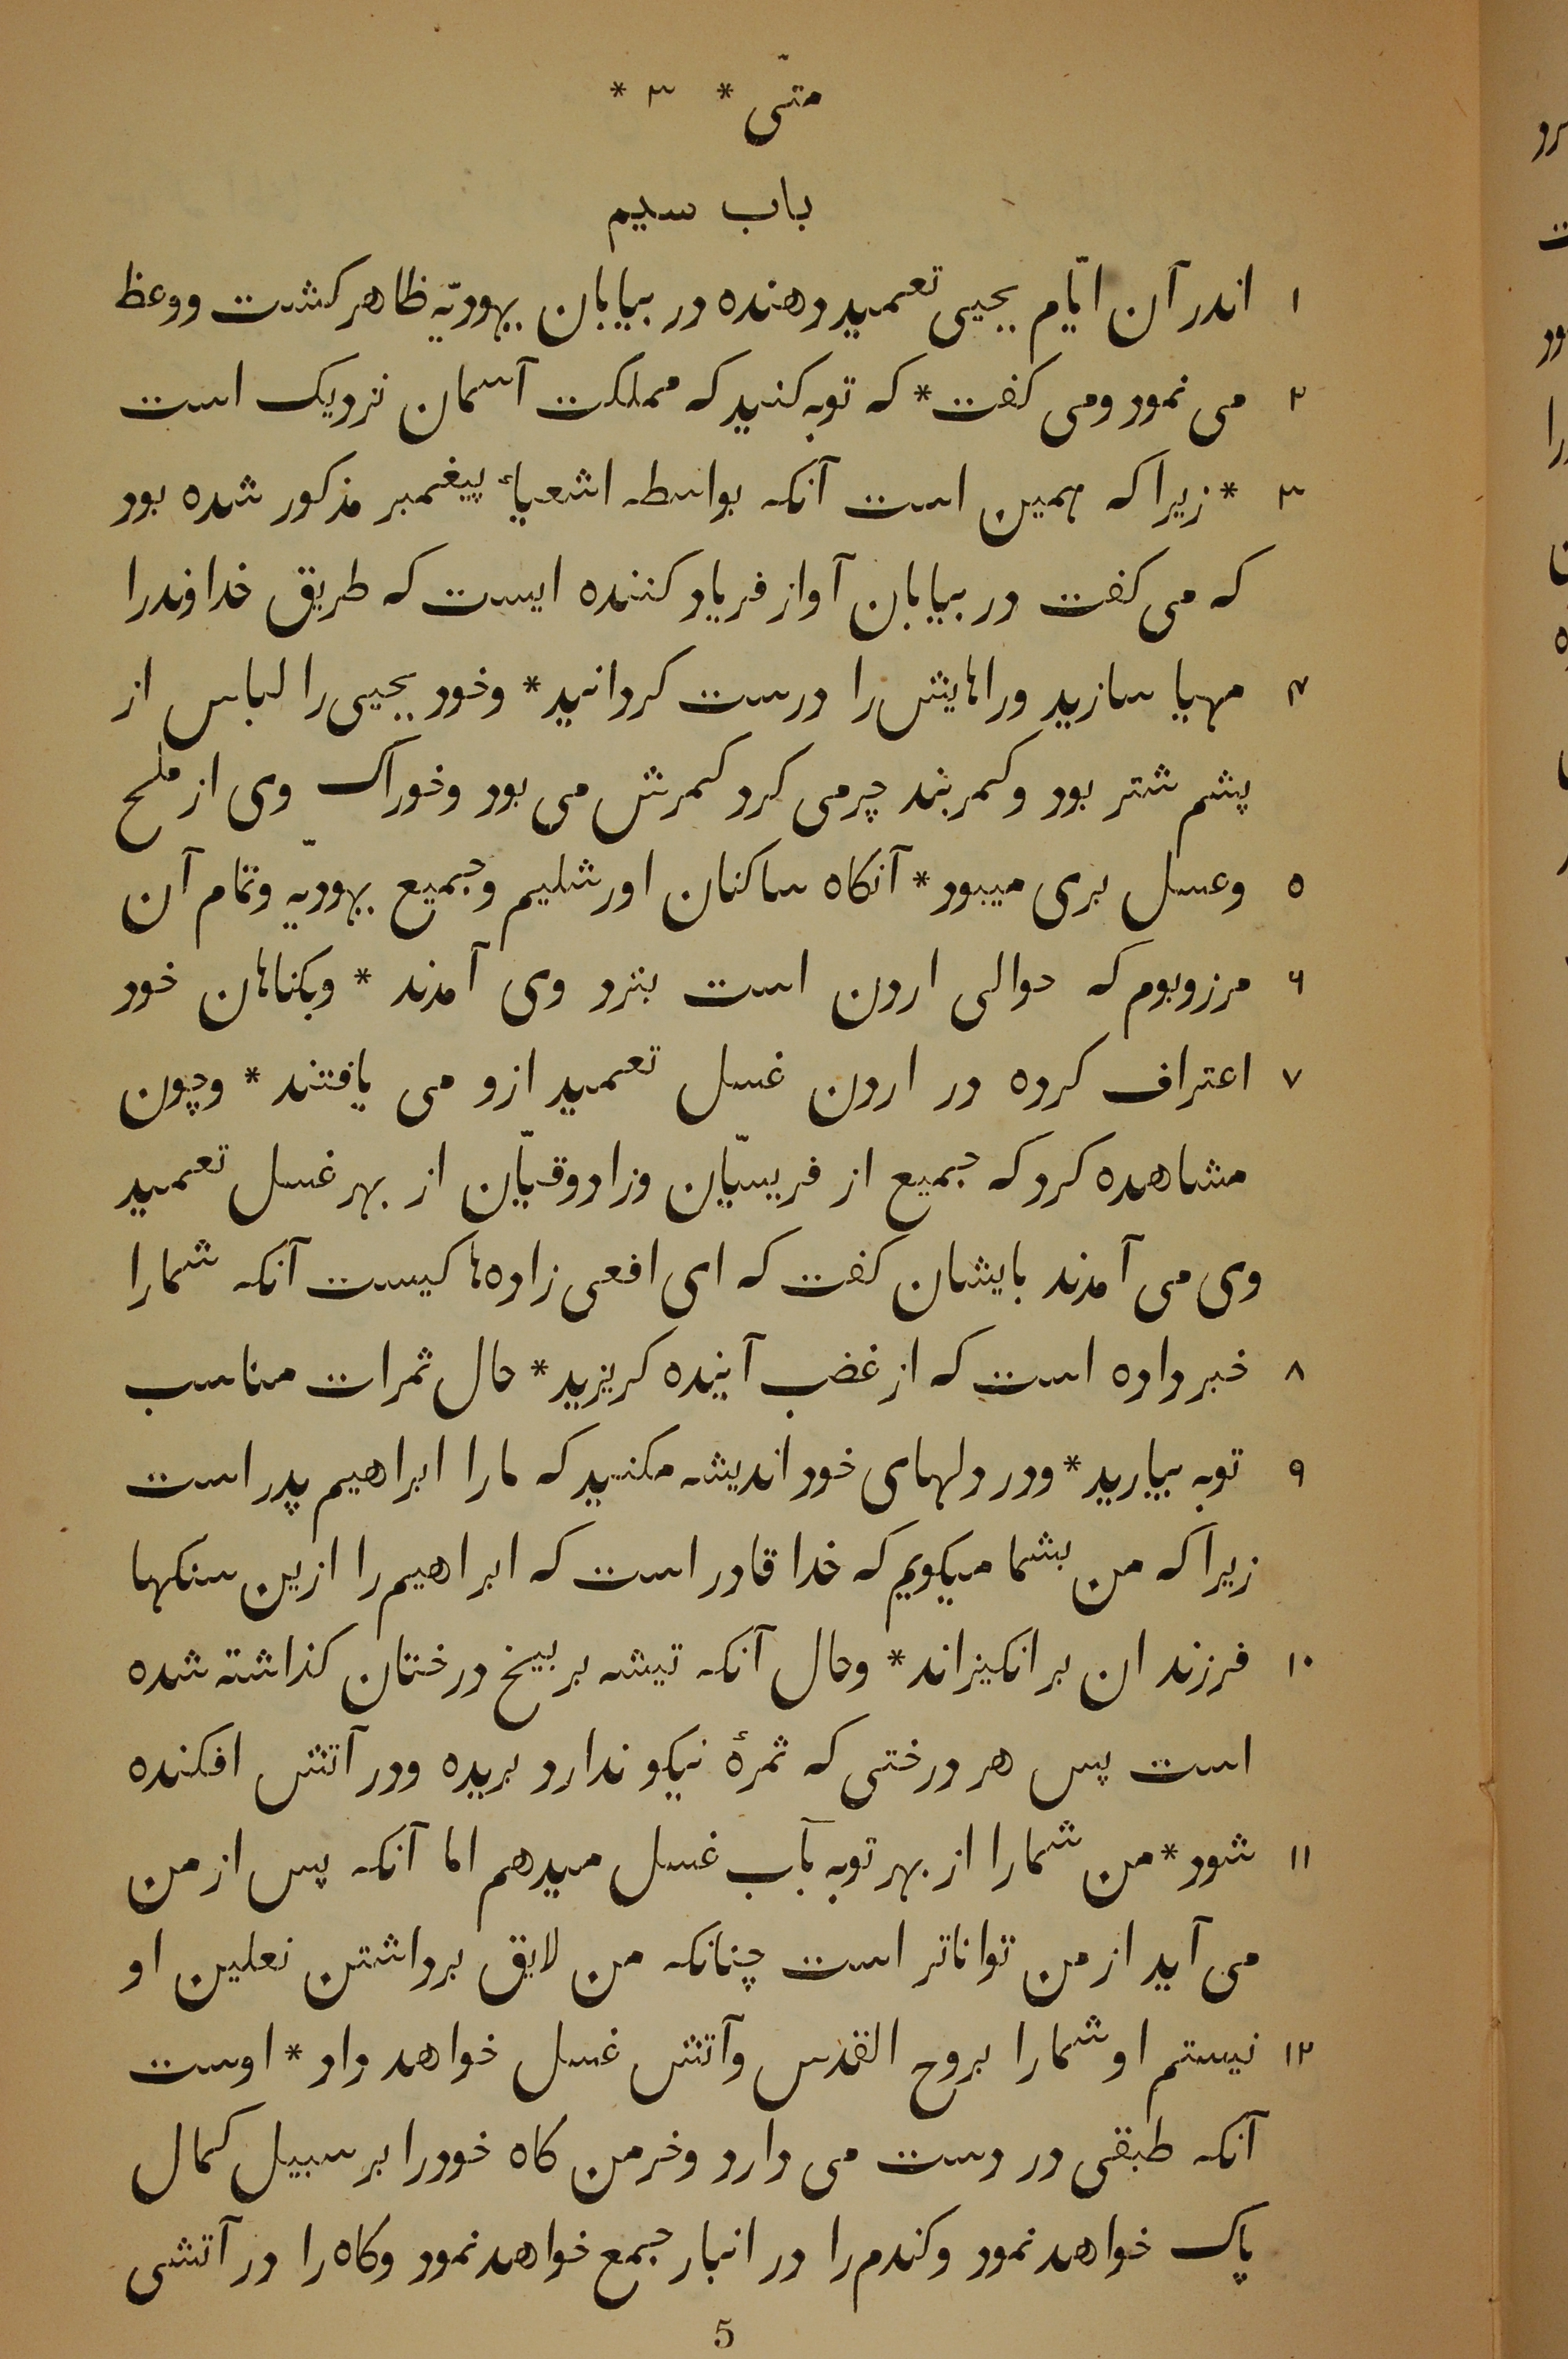 متّی * ۳ *
باب سیم
۱ اندر آن ایّام یحیی تعمید دهنده در بیابان یهودیّه ظاهر کشت ووعظ
۲ می نمود ومی کفت * که توبه کنید که مملکت آسمان نزدیک است
۳ * زیرا که همین است آنکه بواسطه اشعیاء پیغمبر مذکور شده بود
که می کفت در بیابان آواز فریاد کننده ایست که طریق خداوندرا
۴ مهیا سازید وراهایش را درست کردانید * وخود یحیی را لباس از
پشم شتر بود وکمربند چرمی کرد کمرش می بود وخوراک وی از ملخ
۵ وعسل بری میبود * آنکاه ساکنان اورشلیم وجمیع یهودیّه وتمام آن
۶ مرزوبوم که حوالی اردن است بنزد وی آمدند * وبکناهان خود
۷ اعتراف کرده در اردن غسل تعمید ازو می یافتند * وچون
مشاهده کرد که جمیع از فریسیّان وزادوقیّان از بهر غسل تعمید
وی می آمدند بایشان کفت که ای افعی زاده‌ها کیست آنکه شمارا
۸ خبر داده است که از غضب آینده کریزید * حال ثمرات مناسب
۹ توبه بیارید * ودر دلهای خود اندیشه مکنید که مارا ابراهیم پدر است
زیرا که من بشما میکویم که خدا قادر است که ابراهیم را ازین سنکها
۱۰ فرزند ان بر انکیزاند * وحال آنکه تیشه بر بیخ درختان کذاشته شده
است پس هر درختی که ثمرهٔ نیکو ندارد بریده ودر آتش افکنده
۱۱ شود * من شمارا از بهر توبه بآب غسل میدهم اما آنکه پس از من
می آید از من تواناتر است چنانکه من لایق برداشتن نعلین او
۱۲ نیستم او شمارا بروح القدس وآتش غسل خواهد داد * اوست
آنکه طبقی در دست می دارد وخرمن کاه خودرا بر سبیل کمال
پاک خواهد نمود وکندم را در انبار جمع خواهد نمود وکاه را در آتشی
5